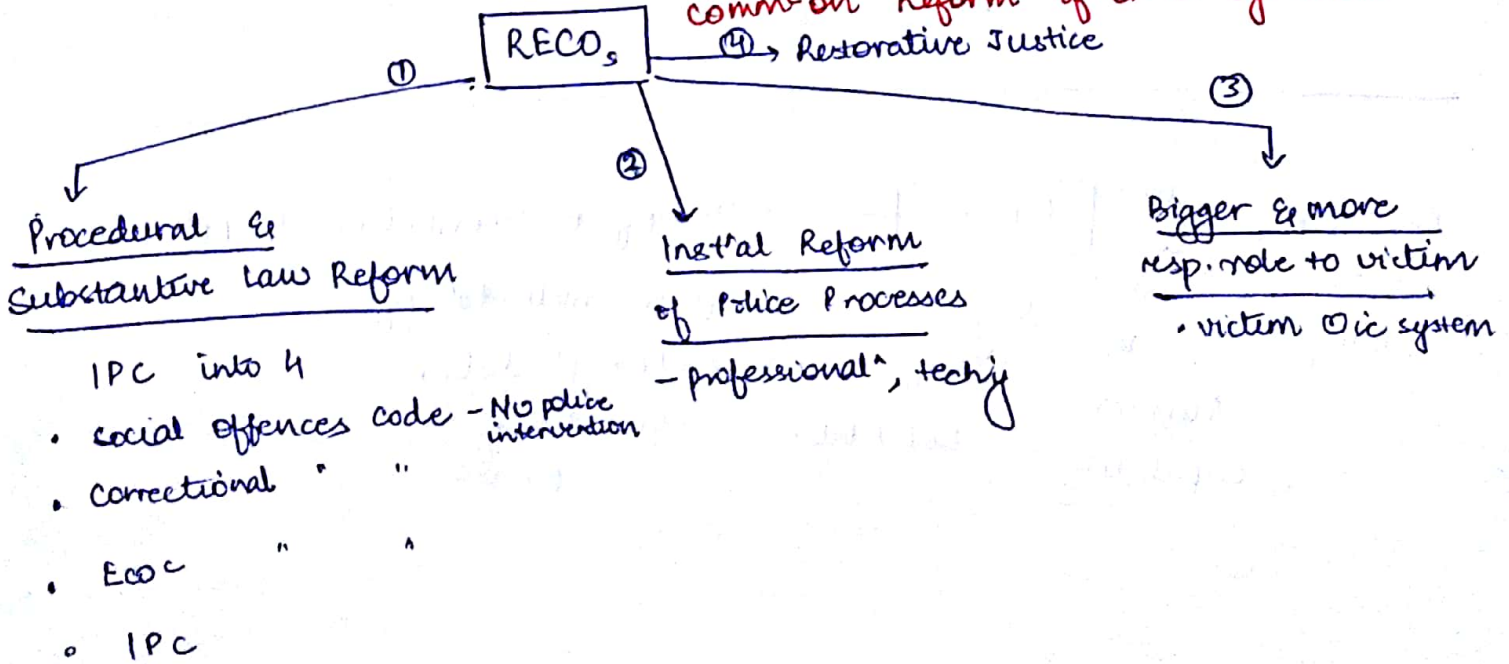 comm on Reform of
RECOs
④ → Restorative Justice
①
②
③
Procedural &
Substantive Law Reform
IPC into 4
• social offences code - No police
intervention
• Correctional " "
• Ecoc " "
• IPC
Inst'al Reform
of Police Processes
- professional^, techy
Bigger & more
resp. role to victim
• victim ic system